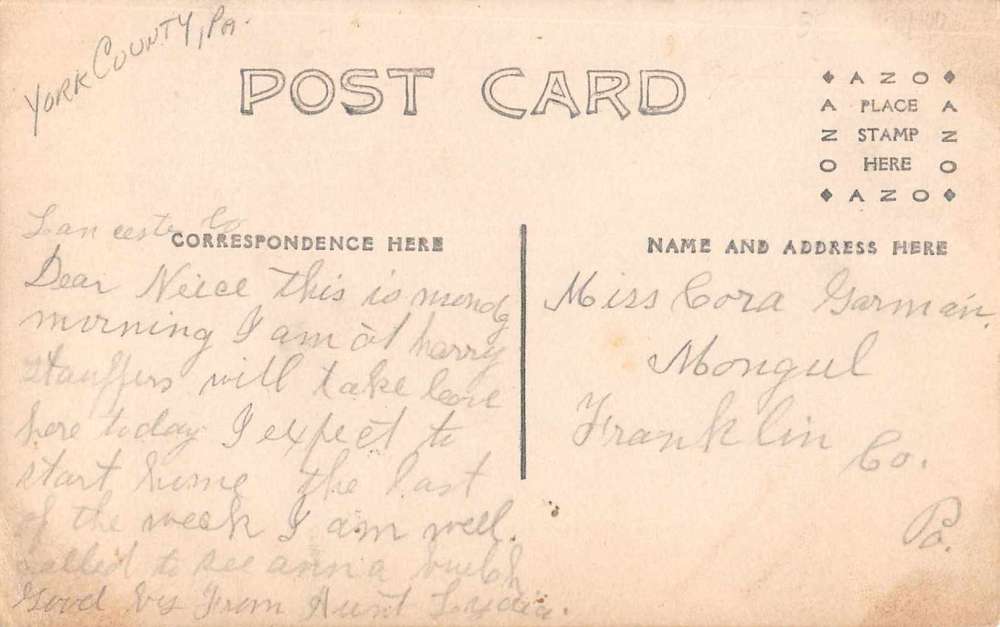 York County, Pa.
POST CARD
AZO
A PLACE A
Z STAMP Z
O HERE O
AZO
Lancester Co
CORRESPONDENCE HERE
NAME AND ADDRESS HERE
Dear Neice this is mondy
morning I am at harry
Stauffers will take leave
here today I expect to
start home the last
of the week I am well.
called to see anna
Good By From Aunt Lydia.
Miss Cora Garman,
Mongul
Franklin Co.
Pa.